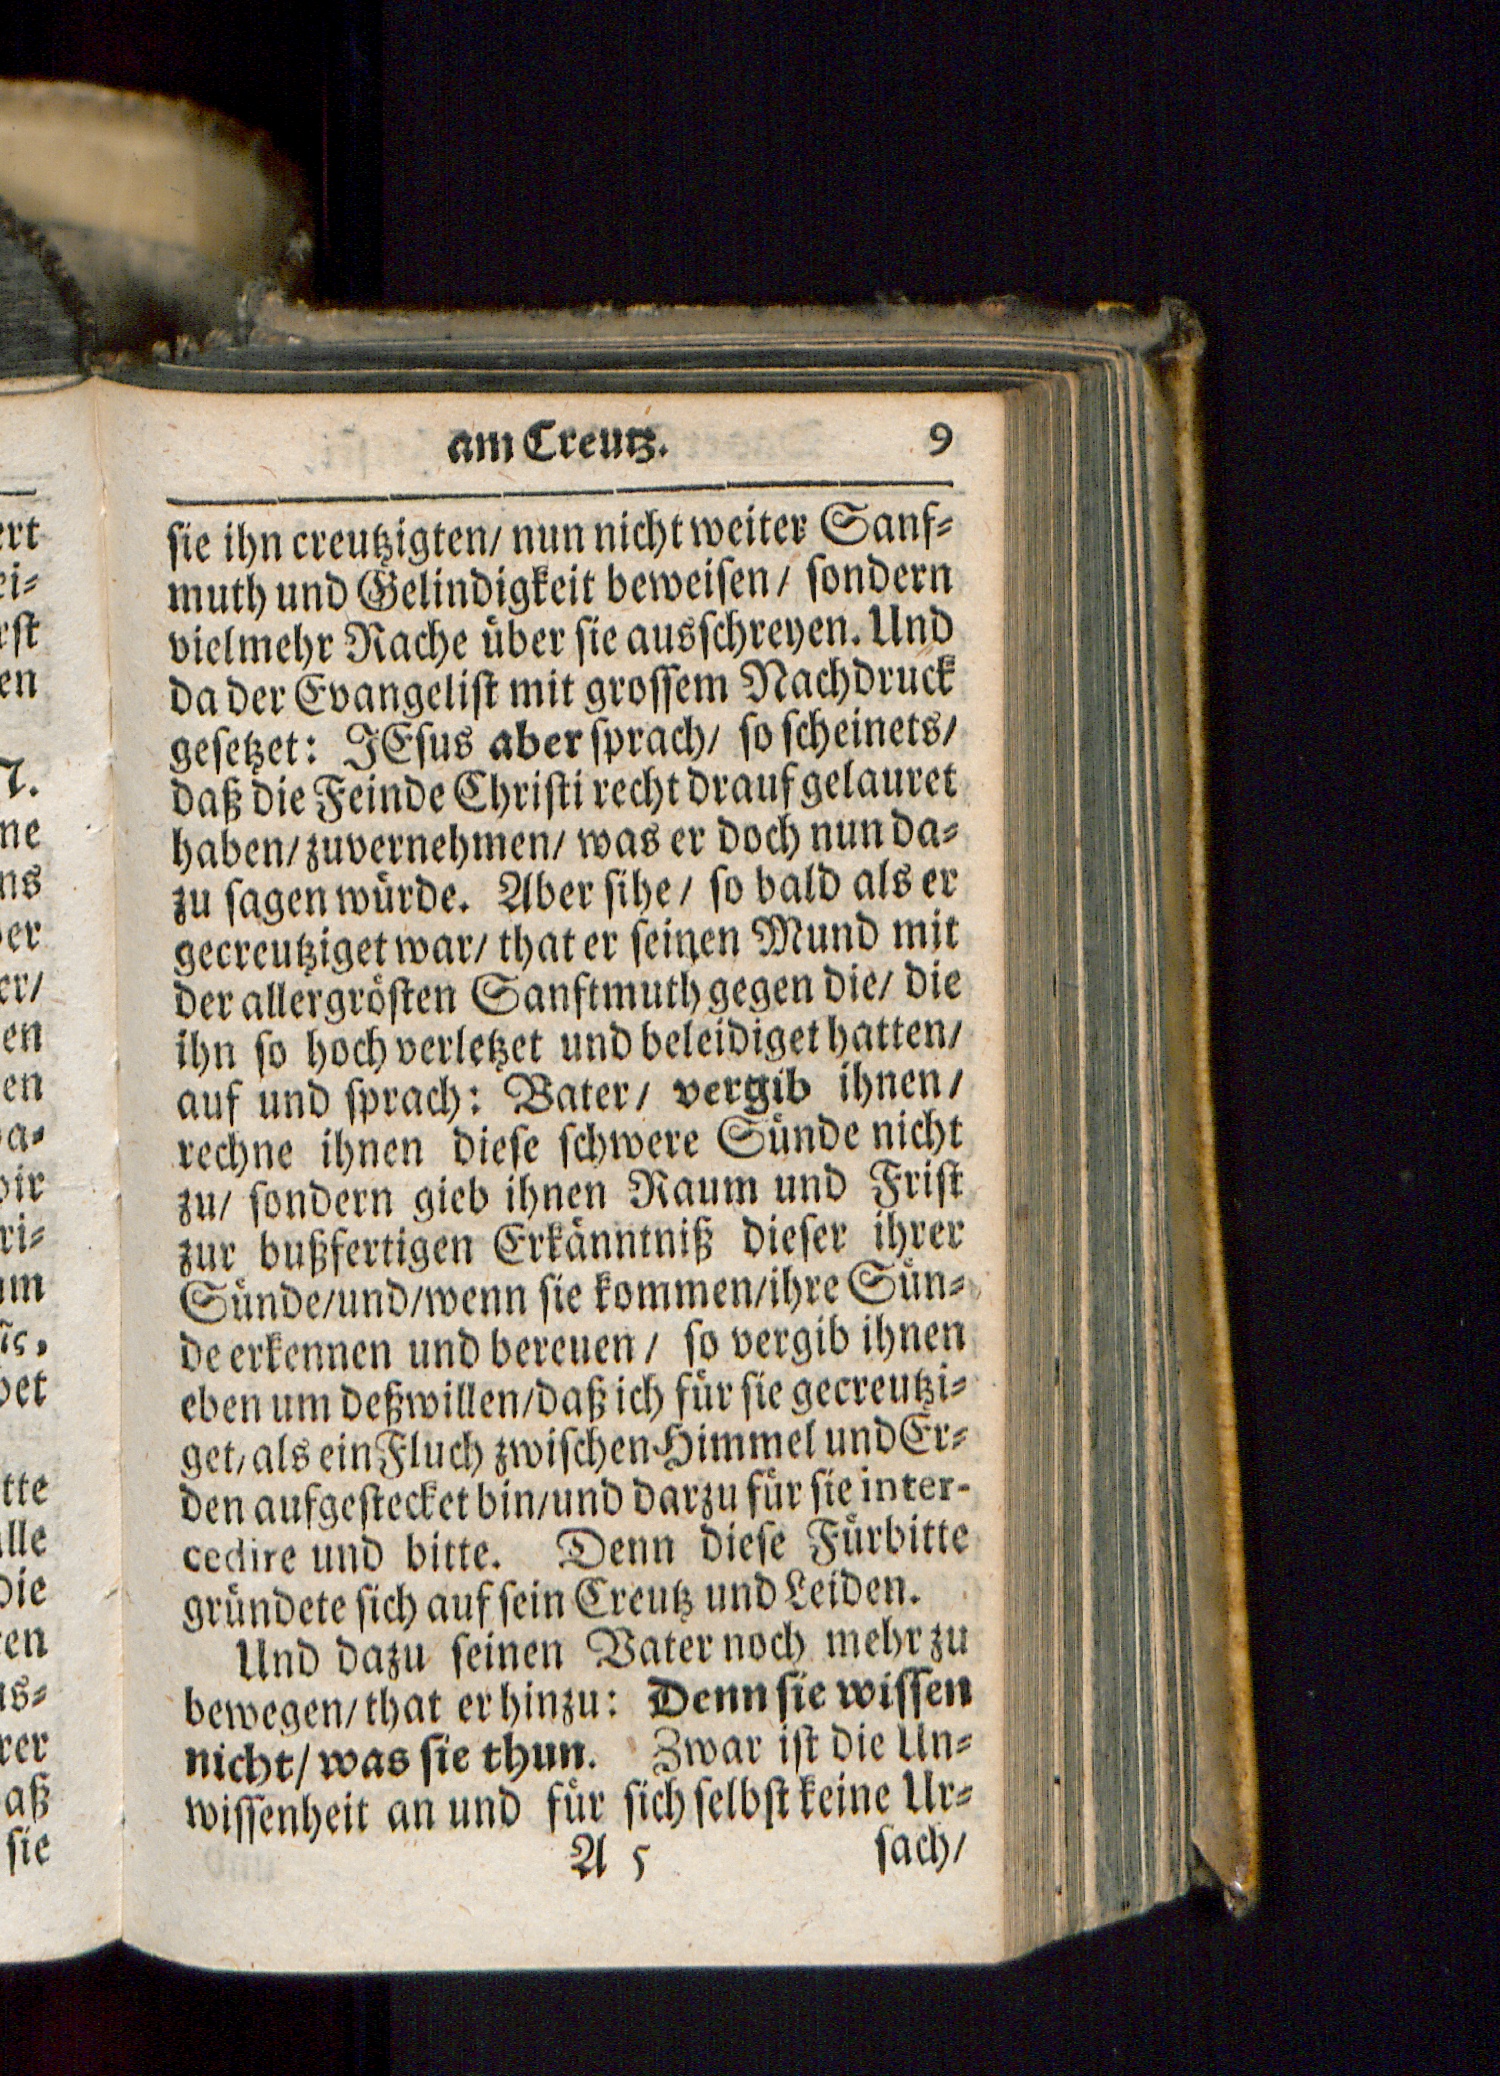 am Creutz. 9
sie ihn creutzigten/ nun nicht weiter Sanf⸗
muth und Gelindigkeit beweisen/ sondern
vielmehr Rache über sie ausschreyen. Und
da der Evangelist mit grossem Nachdruck
gesetzet: JEsus aber sprach/ so scheinets/
daß die Feinde Christi recht drauf gelauret
haben/ zuvernehmen/ was er doch nun da⸗
zu sagen würde. Aber sihe/ so bald als er
gecreutziget war/ that er seinen Mund mit
der allergrösten Sanftmuth gegen die/ die
ihn so hoch verletzet und beleidiget hatten/
auf und sprach: Vater/ vergib ihnen/
rechne ihnen diese schwere Sünde nicht
zu/ sondern gieb ihnen Raum und Frist
zur bußfertigen Erkänntniß dieser ihrer
Sünde/und/wenn sie kommen/ihre Sün⸗
de erkennen und bereuen/ so vergib ihnen
eben um deßwillen/daß ich für sie gecreutzi⸗
get, als ein Fluch zwischen Himmel und Er⸗
den aufgestecket bin/und darzu für sie inter-
cedire und bitte. Denn diese Fürbitte
gründete sich auf sein Creutz und Leiden.
Und dazu seinen Vater noch mehr zu
bewegen/that er hinzu: Denn sie wissen
nicht/ was sie thun. Zwar ist die Un⸗
wissenheit an und für sich selbst keine Ur⸗
A 5 sach/